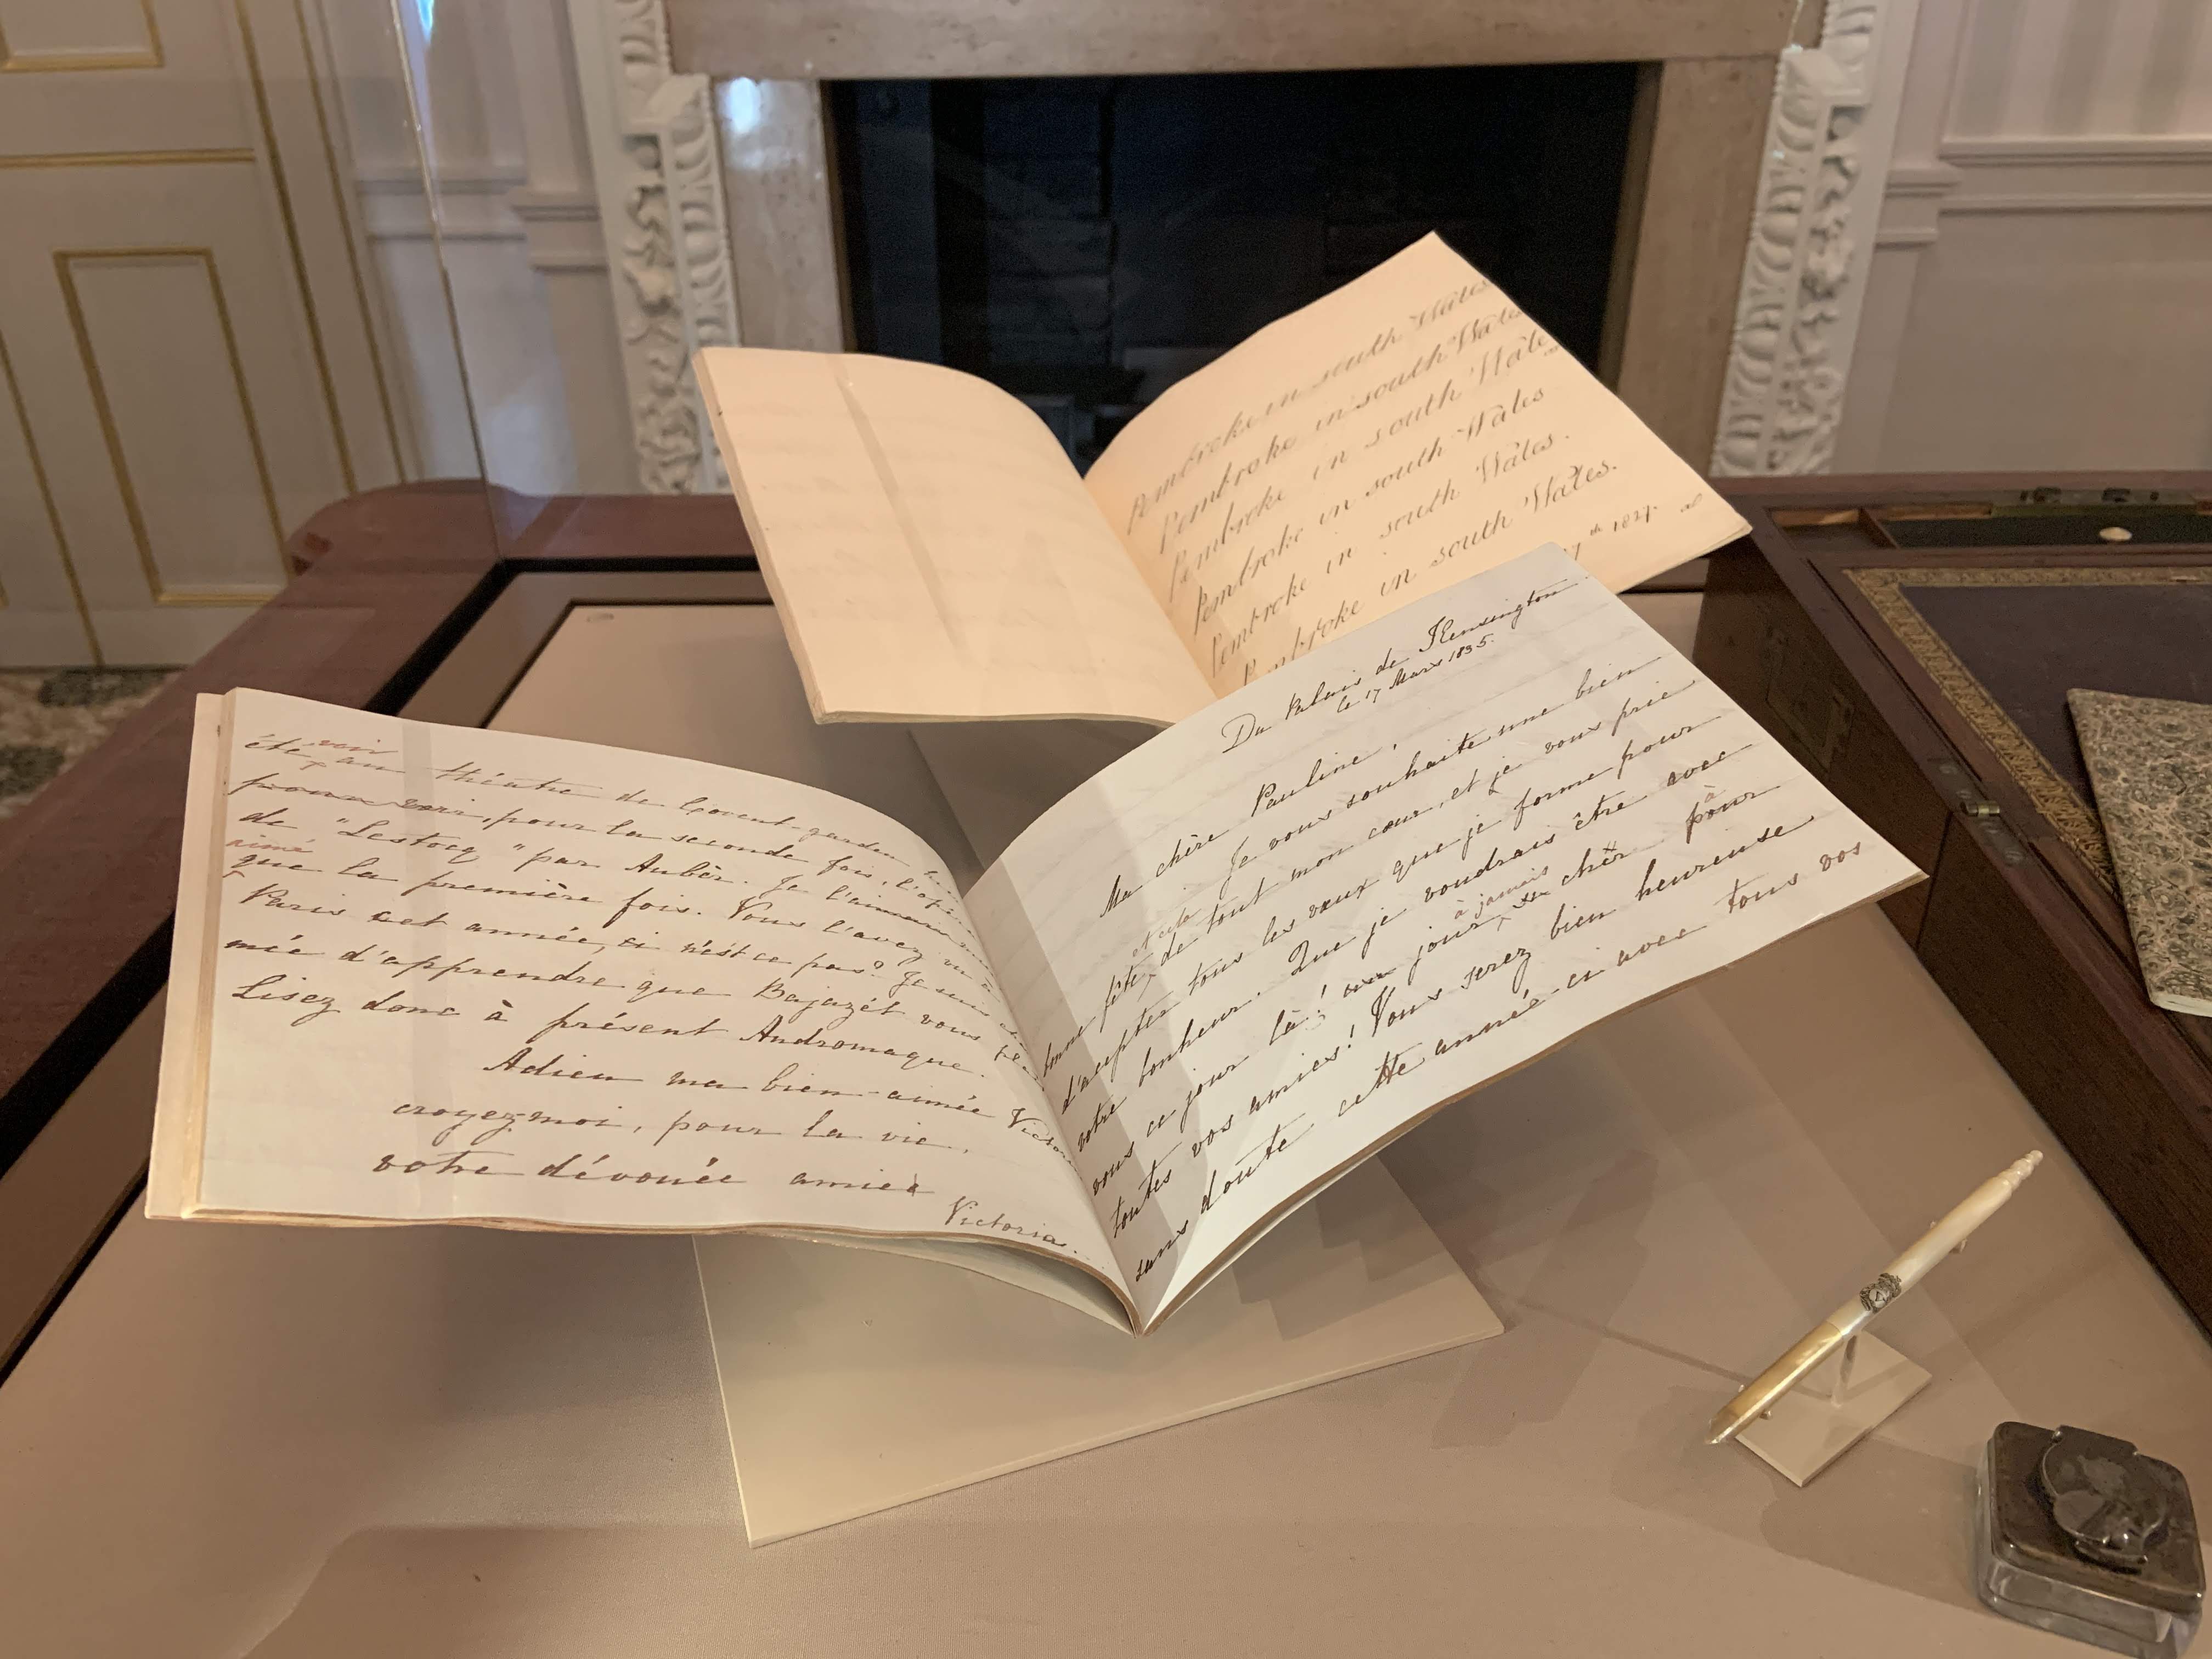 Pembroke in south Wales
Pembroke in south Wales
Pembroke in south Wales
Pembroke in south Wales
Pembroke in south Wales.
Pembroke in south Wales.
th 1827.
été voir au théatre de Covent-garden
pour la seconde fois, l'opéra
de "Lestocq" par Aubèr. Je l'aimais
aimé
que la première fois. Vous l'avez vu à
Paris cet année, ci n'est ce pas? Je suis
mée d'apprendre que Bajazét vous
Lisez donc à présent Andromaque.
Adieu ma bien-aimée Victoire
croyez-moi, pour la vie,
votre dévouée amie
Victoria.
Du Palais de Kensington
le 17 Mars 1835.
Ma chère Pauline,
Je vous souhaite une bien
bonne fête, et cela de tout mon cœur, et je vous prie
d'accepter tous les vœux que je forme pour
votre bonheur. Que je voudrais être avec
vous ce jour là! jour, à jamais chèr pour à
toutes vos amies! Vous serez bien heureuse
sans doute cette année-ci avec tous vos